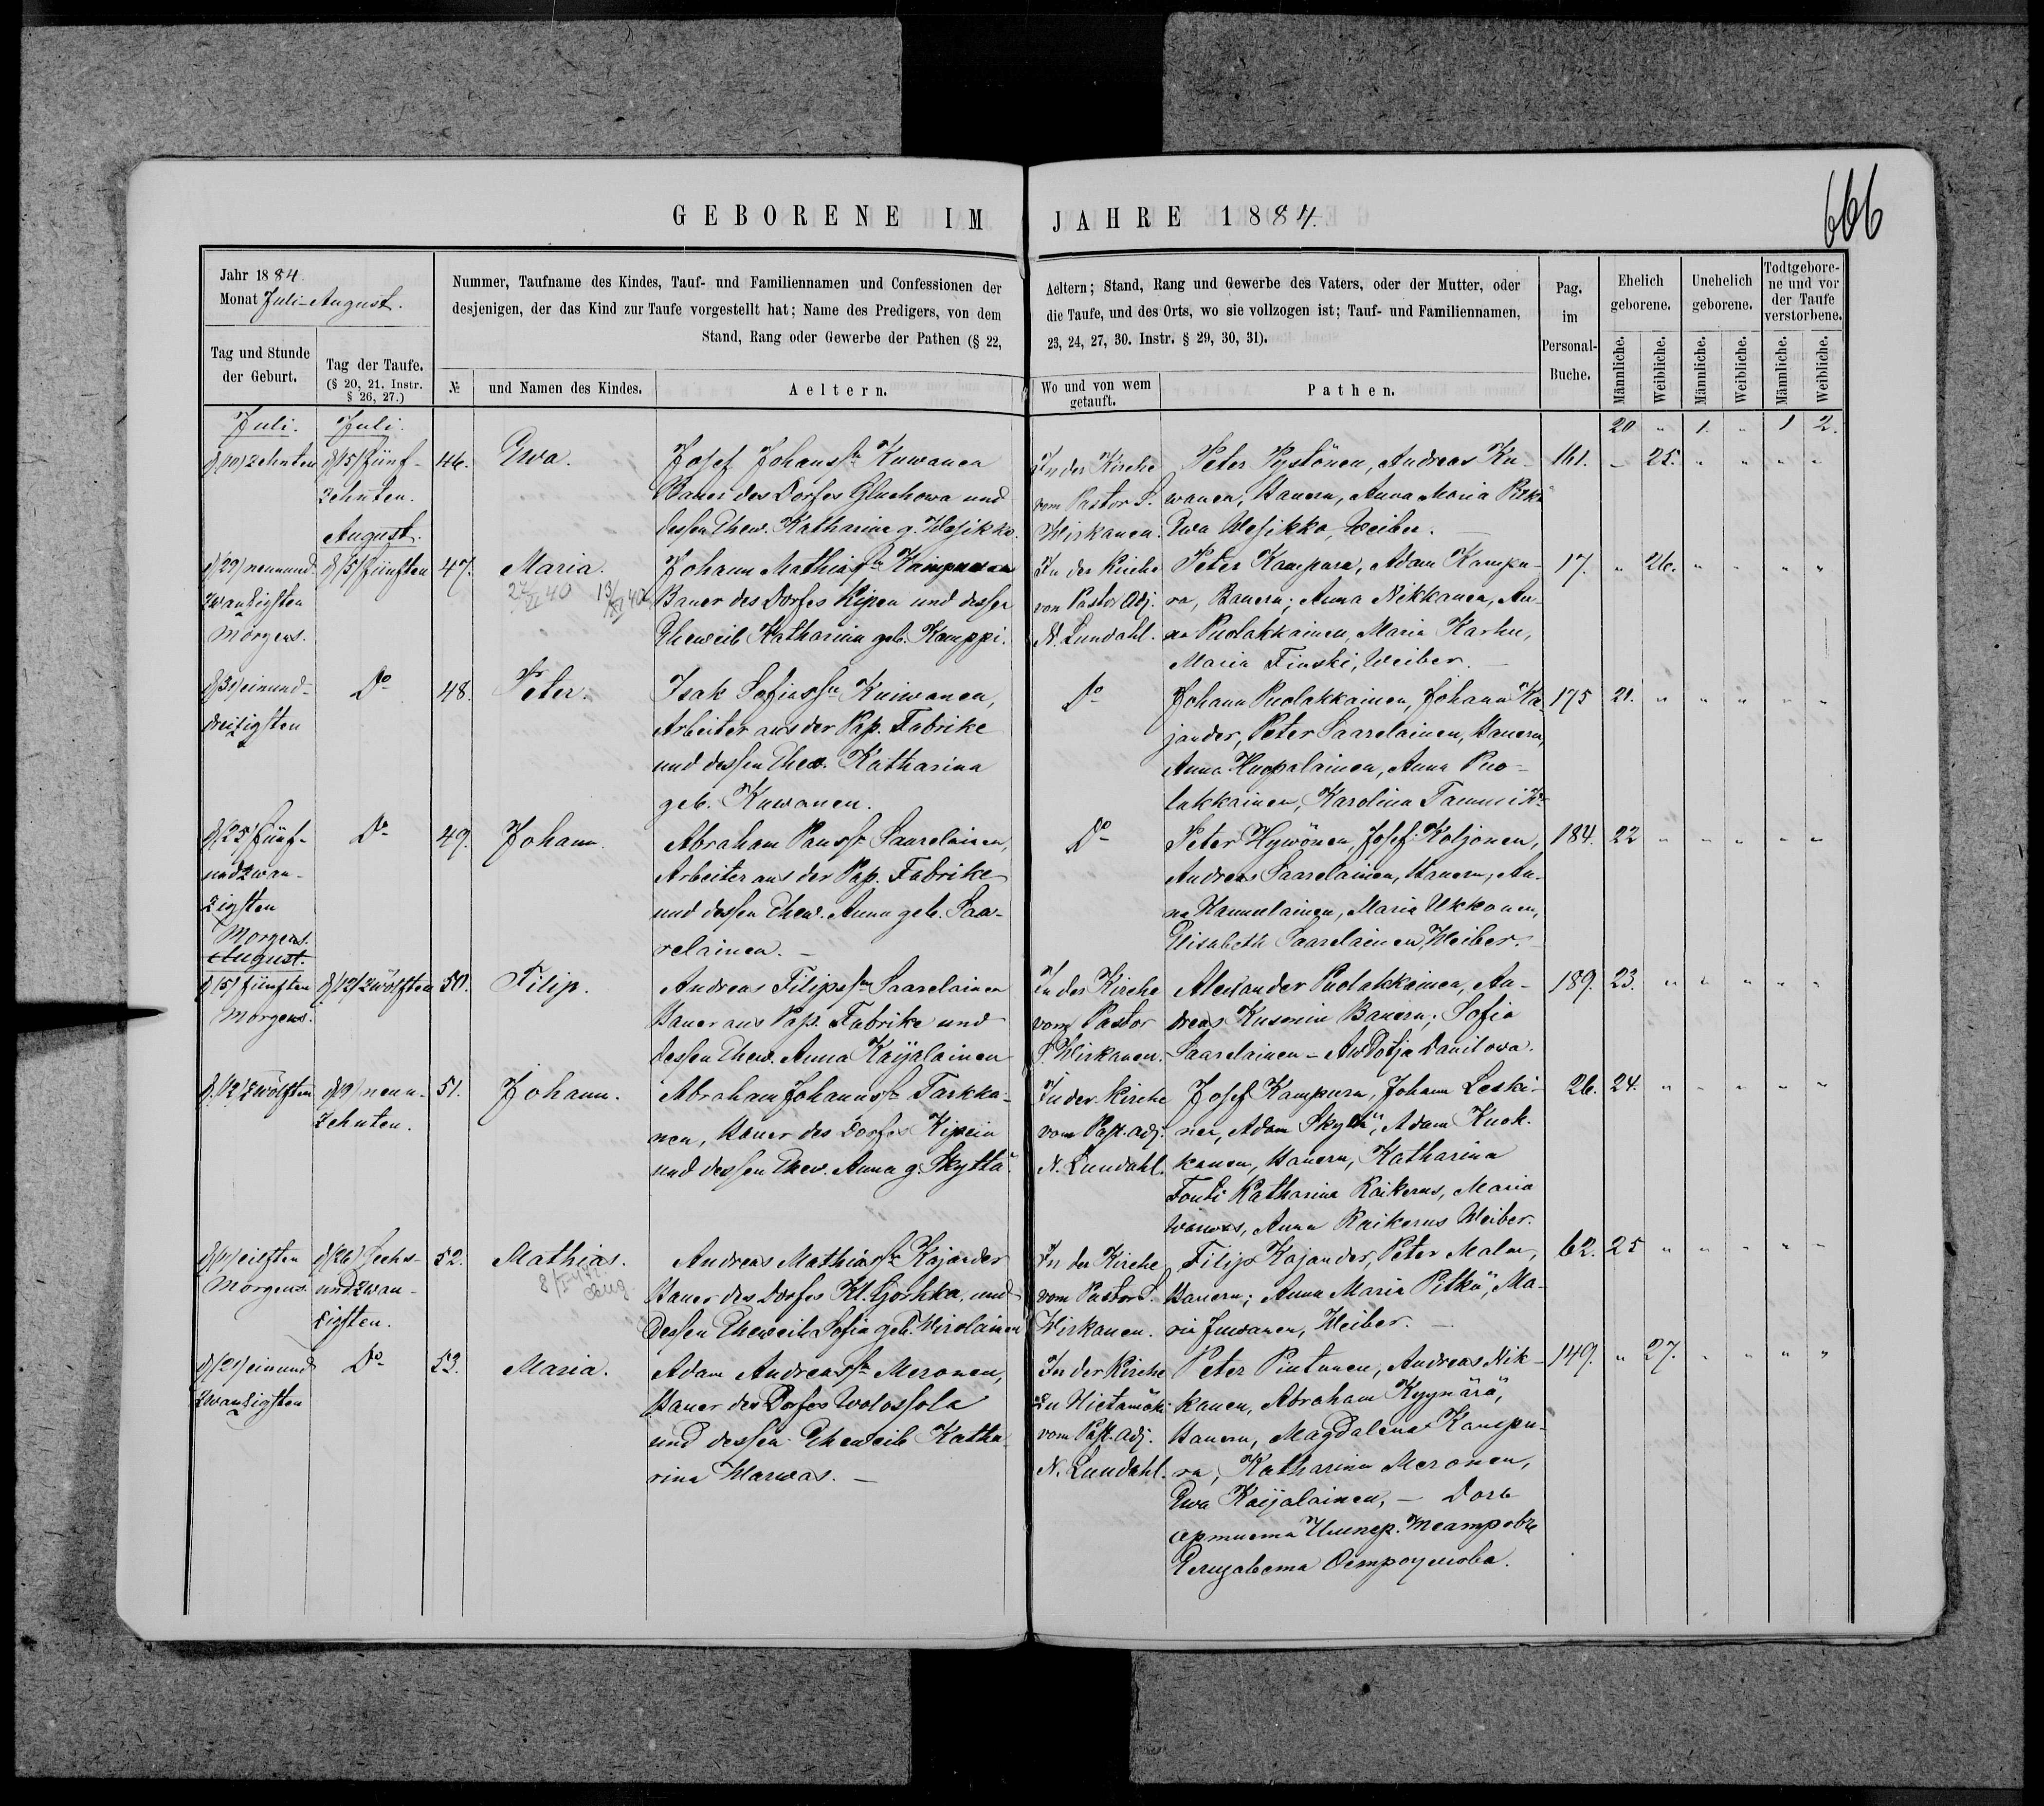 GEBORENE IM JAHRE 1884.
666
Jahr 1884.
Monat Juli-August.
Tag und Stunde
der Geburt.
Tag der Taufe.
(§ 20, 21. Instr.
§ 26, 27.)
Nummer, Taufname des Kindes, Tauf- und Familiennamen und Confessionen der
desjenigen, der das Kind zur Taufe vorgestellt hat; Name des Predigers, von dem
Stand, Rang oder Gewerbe der Pathen (§ 22,
№
und Namen des Kindes.
Aeltern.
Aeltern; Stand, Rang und Gewerbe des Vaters, oder der Mutter, oder
die Taufe, und des Orts, wo sie vollzogen ist; Tauf- und Familiennamen,
23, 24, 27, 30. Instr. § 29, 30, 31).
Wo und von wem
getauft.
Pathen.
Pag.
im
Personal-
Buche.
Ehelich
geborene.
Unehelich
geborene.
Todtgebore-
ne und vor
der Taufe
verstorbene.
Männliche.
Weibliche.
Männliche.
Weibliche.
Männliche.
Weibliche.
20 " 1. " 1 2.
Juli.
d (10) zehnten
Juli.
d (15) fünf-
zehnten.
46.
Ewa.
Josef Johanssn Kuwanen
Bauer des Dorfes Gluchowa und
dessen Ehew. Katharina g. Wesikko.
In der Kirche
vom Pastor S.
Wirkanen.
Peter Pystönen, Andreas Ku-
wanen, Bauern, Anna Maria Pitkä
Ewa Wesikko, Weiber.
161. " 25. " " " "
d (29) neunund-
zwanzigsten
Morgens.
August.
d (5) fünften
47.
Maria.
27/XI 40
Johann Mathiassn Kampuran
Bauer des Dorfes Kipen und dessen
Eheweib Katharina geb. Kamppi.
In der Kirche
von Pastor Adj.
N. Lundahl.
Peter Kampura, Adam Kampu-
ra, Bauern; Anna Nikkanen, An-
na Puolakkainen, Maria Karhu,
Maria Finski, Weiber.
17. " 26. " " " "
d (31) einund-
dreizigsten
Do
48.
Peter.
Isak Sofiassn Kuiwanen,
Arbeiter aus der Pap. Fabrike
und dessen Ehew. Katharina
geb. Kuwanen.
Do
Johann Puolakkainen, Johann Ka-
jander, Peter Saarelainen, Bauern,
Anna Huopalainen, Anna Puo-
lakkainen, Karolina
175 21. " " " " "
d (25) fünf-
undzwan-
zigsten
Morgens.
Do
49.
Johann.
Abraham Paulssn Saarelainen,
Arbeiter aus der Pap. Fabrike
und dessen Ehew. Anna geb. Saa-
relainen.
Do
Peter Hywönen, Josef Koljonen,
Andreas Saarelainen, Bauern, An-
na Hannulainen, Maria Ukkonen,
Elisabeth Saarelainen, Weiber.
184. 22 " " " " "
August.
d (5) fünften
Morgens.
d (12) zwölften
50.
Filip.
Andreas Filipssn Saarelainen
Bauer aus Pap. Fabrike und
dessen Ehew. Anna Kaijalainen
In der Kirche
vom Pastor
S. Wirkanen.
Alexander Puolakkainen, An-
dreas Kusmin Bauern; Sofia
Saarelainen - Awdotja Danilowa.
189. 23. " " " " "
d. (12) zwölften
d (19) neun-
zehnten.
51.
Johann.
Abraham Johannssn Tarkka-
nen, Bauer des Dorfes Kipein
und dessen Ehew. Anna g. Skyttä.
In der Kirche
vom Past. adj.
N. Lundahl.
Josef Kampura, Johann Leski-
nen, Adam Skyttä, Adam Kuok-
kanen, Bauern, Katharina
Tonti Katharina Raikerus, Maria
Warwas, Anna Raikerus Weiber.
26. 24. " " " " "
d (11) eilften
Morgens.
d (26) Sechs-
undzwan-
zigsten.
52.
Mathias.
Andreas Mathiassn Kajander
Bauer des Dorfes Kl. Gorkka, und
dessen Eheweib Sofia geb. Wirolainen
In der Kirche
vom Pastor S.
Wirkanen.
Filip Kajander, Peter Malm,
Bauern; Anna Maria Pitkä, Ma-
ria Juwanen, Weiber.
62. 25 " " " " "
d (21) einund
zwanzigsten
Do
53.
Maria.
Adam Andreassn Meronen,
Bauer des Dorfes Wolossola
und dessen Eheweib Katha-
rina Warwas.
In der Kirche
zu Hietamäki
vom Past. adj.
N. Lundahl.
Peter Pintunen, Andreas Nik-
kanen, Abraham Kyynärä,
Bauern, Magdalena Kampu-
ra, Katharina Meronen,
Ewa Kaijalainen, - Дочь
артиста Импер. театровъ
Елизавета Остроумова.
149. " 27. " " " "